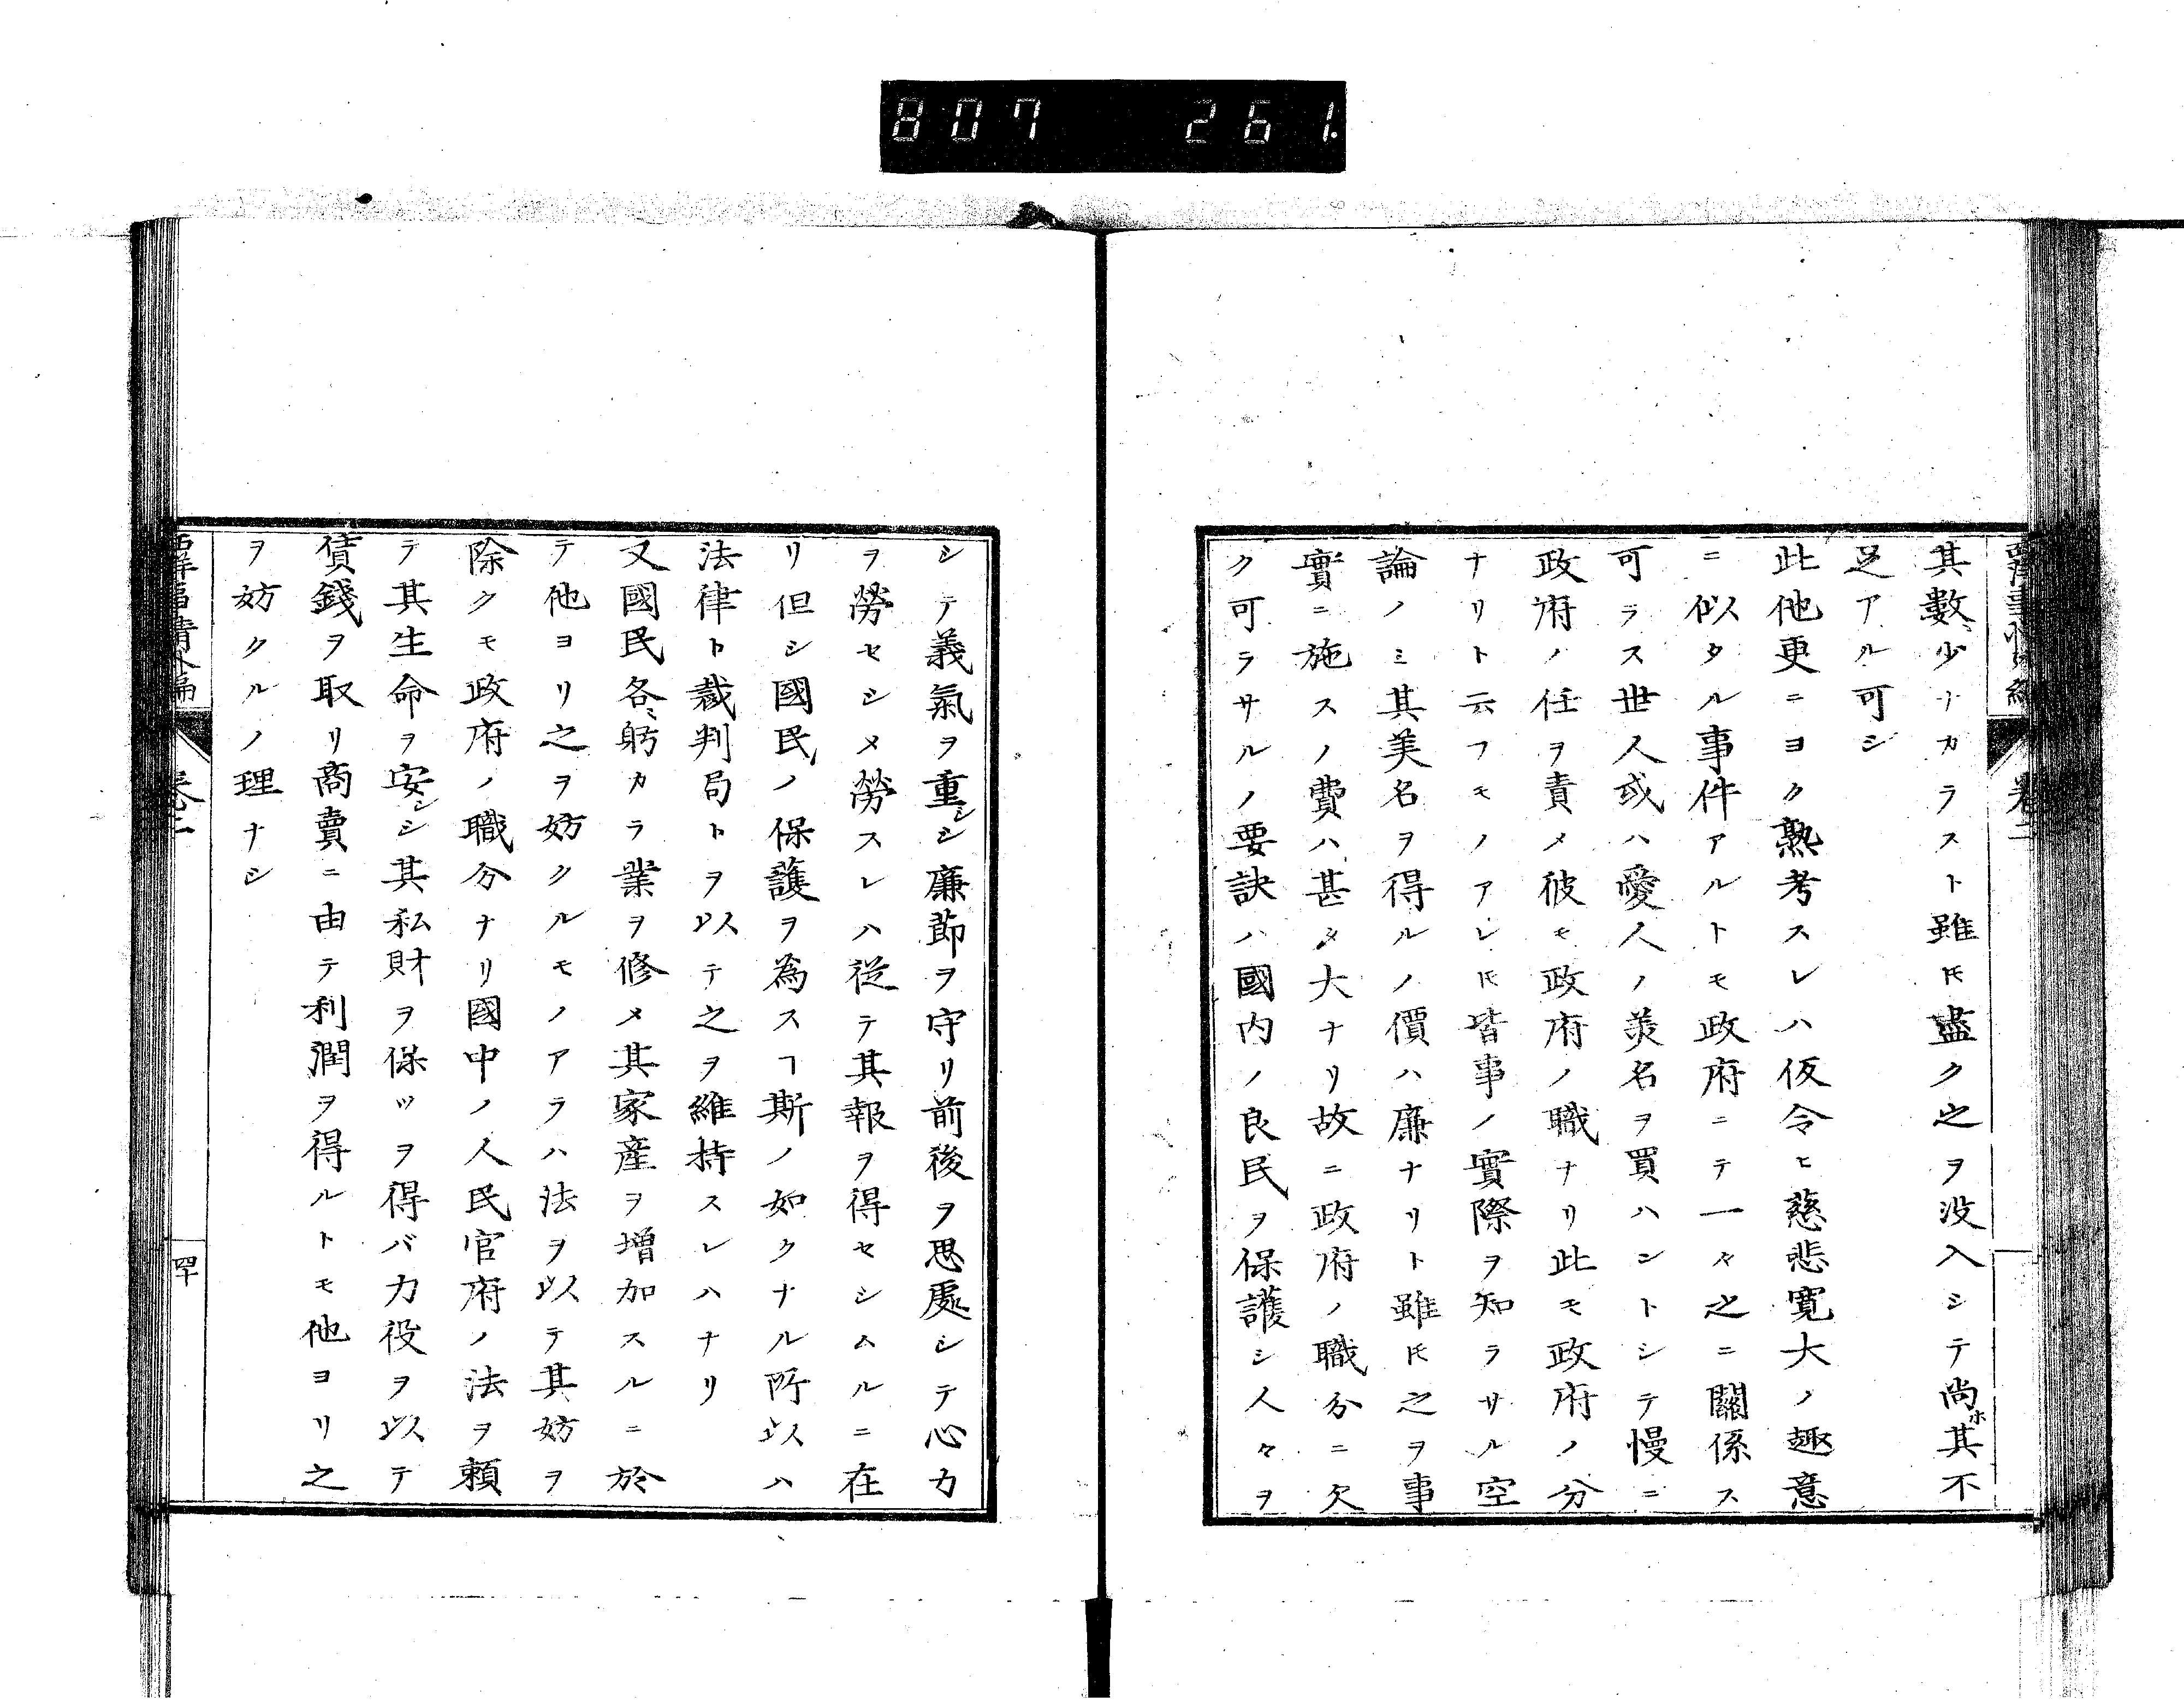 807 261.
其數少ナカラスト雖𪜈盡ク之ヲ沒入シテ尚ホ其不
足アル可シ
此他更ニヨク熟考スレハ仮令ヒ慈悲寛大ノ趣意
ニ似タル事件アルトモ政府ニテ一々之ニ關係ス
可ラス世人或ハ愛人ノ美名ヲ買ハントシテ慢ニ
政府ノ任ヲ責メ彼モ政府ノ職ナリ此モ政府ノ分
ナリト云フモノアレ𪜈皆事ノ實際ヲ知ラサル空
論ノミ其美名ヲ得ルノ價ハ廉ナリト雖𪜈之ヲ事
實ニ施スノ費ハ甚タ大ナリ故ニ政府ノ職分ニ欠
ク可ラサルノ要訣ハ國内ノ良民ヲ保護シ人々ヲ
シテ義氣ヲ重ンシ廉節ヲ守リ前後ヲ思慮シテ心力
ヲ勞セシメ勞スレハ從テ其報ヲ得セシムルニ在
リ但シ國民ノ保護ヲ為スヿ斯ノ如クナル所以ハ
法律ト裁判局トヲ以テ之ヲ維持スレハナリ
又國民各〻躬カラ業ヲ修メ其家産ヲ增加スルニ於
テ他ヨリ之ヲ妨クルモノアラハ法ヲ以テ其妨ヲ
除クモ政府ノ職分ナリ國中ノ人民官府ノ法ヲ賴
テ其生命ヲ安ンシ其私財ヲ保ツヲ得バ力役ヲ以テ
賃錢ヲ取リ商賣ニ由テ利潤ヲ得ルトモ他ヨリ之
ヲ妨クルノ理ナシ
西洋事情外編 卷二 四十